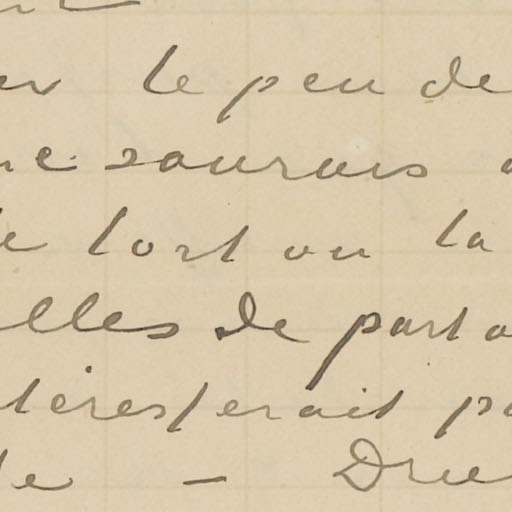 le peu de
ne saurais
le tort ou la
elles de part
téresterait pa
te - Dre